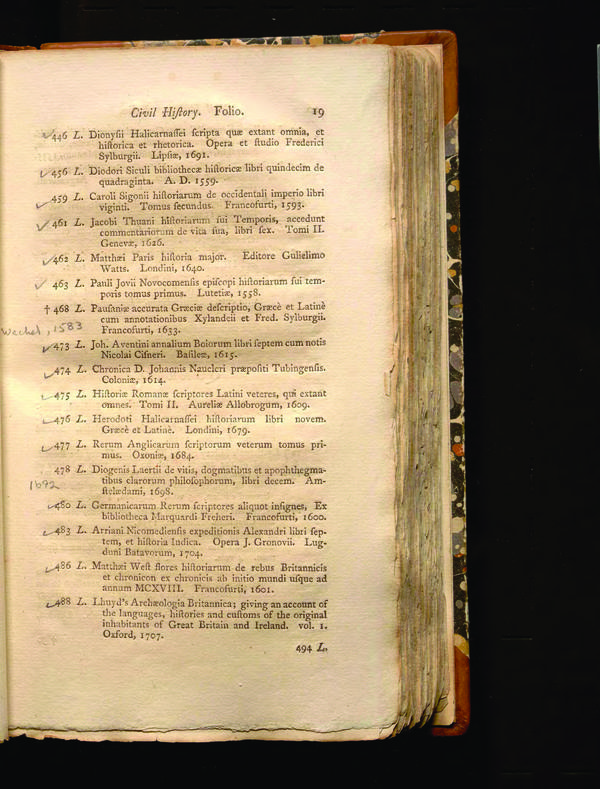 Civil Hiſtory. Folio. 19
446 L. Dionyſii Halicarnaſſei ſcripta quæ extant omnia, et
hiſtorica et rhetorica. Opera et ſtudio Frederici
Sylburgii. Lipſiæ, 1691.
456 L. Diodori Siculi bibliothecæ hiſtoricæ libri quindecim de
quadraginta. A. D. 1559.
459 L. Caroli Sigonii hiſtoriarum de occidentali imperio libri
viginti. Tomus ſecundus. Francofurti, 1593.
461 L. Jacobi Thuani hiſtoriarum ſui Temporis, accedunt
commentariorum de vita ſua, libri ſex. Tomi II.
Genevæ, 1626.
462 L. Matthæi Paris hiſtoria major. Editore Gulielmo
Watts. Londini, 1640.
463 L. Pauli Jovii Novocomenſis epiſcopi hiſtoriarum ſui tem-
poris tomus primus. Lutetiæ, 1558.
† 468 L. Pauſaniæ accurata Græciæ deſcriptio, Græcè et Latinè
cum annotationibus Xylandeii et Fred. Sylburgii.
Francofurti, 1633.
Wechel, 1583
473 L. Joh. Aventini annalium Boiorum libri ſeptem cum notis
Nicolai Ciſneri. Baſileæ, 1615.
474 L. Chronica D. Johannis Naucleri præpoſiti Tubingenſis.
Coloniæ, 1614.
475 L. Hiſtoriæ Romanæ ſcriptores Latini veteres, qui extant
omnes. Tomi II. Aureliæ Allobrogum, 1609.
476 L. Herodoti Halicarnaſſei hiſtoriarum libri novem.
Græcè et Latinè. Londini, 1679.
477 L. Rerum Anglicarum ſcriptorum veterum tomus pri-
mus. Oxoniæ, 1684.
478 L. Diogenis Laertii de vitis, dogmatibus et apophthegma-
tibus clarorum philoſophorum, libri decem. Am-
ſtelædami, 1698.
1692
480 L. Germanicarum Rerum ſcriptores aliquot inſignes, Ex
bibliotheca Marquardi Freheri. Francofurti, 1600.
483 L. Arriani Nicomedienſis expeditionis Alexandri libri ſep-
tem, et hiſtoria Indica. Opera J. Gronovii. Lug-
duni Batavorum, 1704.
486 L. Matthæi Weſt flores hiſtoriarum de rebus Britannicis
et chronicon ex chronicis ab initio mundi uſque ad
annum MCXVIII. Francofurti, 1601.
488 L. Lhuyd's Archæologia Britannica; giving an account of
the languages, hiſtories and cuſtoms of the original
inhabitants of Great Britain and Ireland. vol. 1.
Oxford, 1707.
494 L.